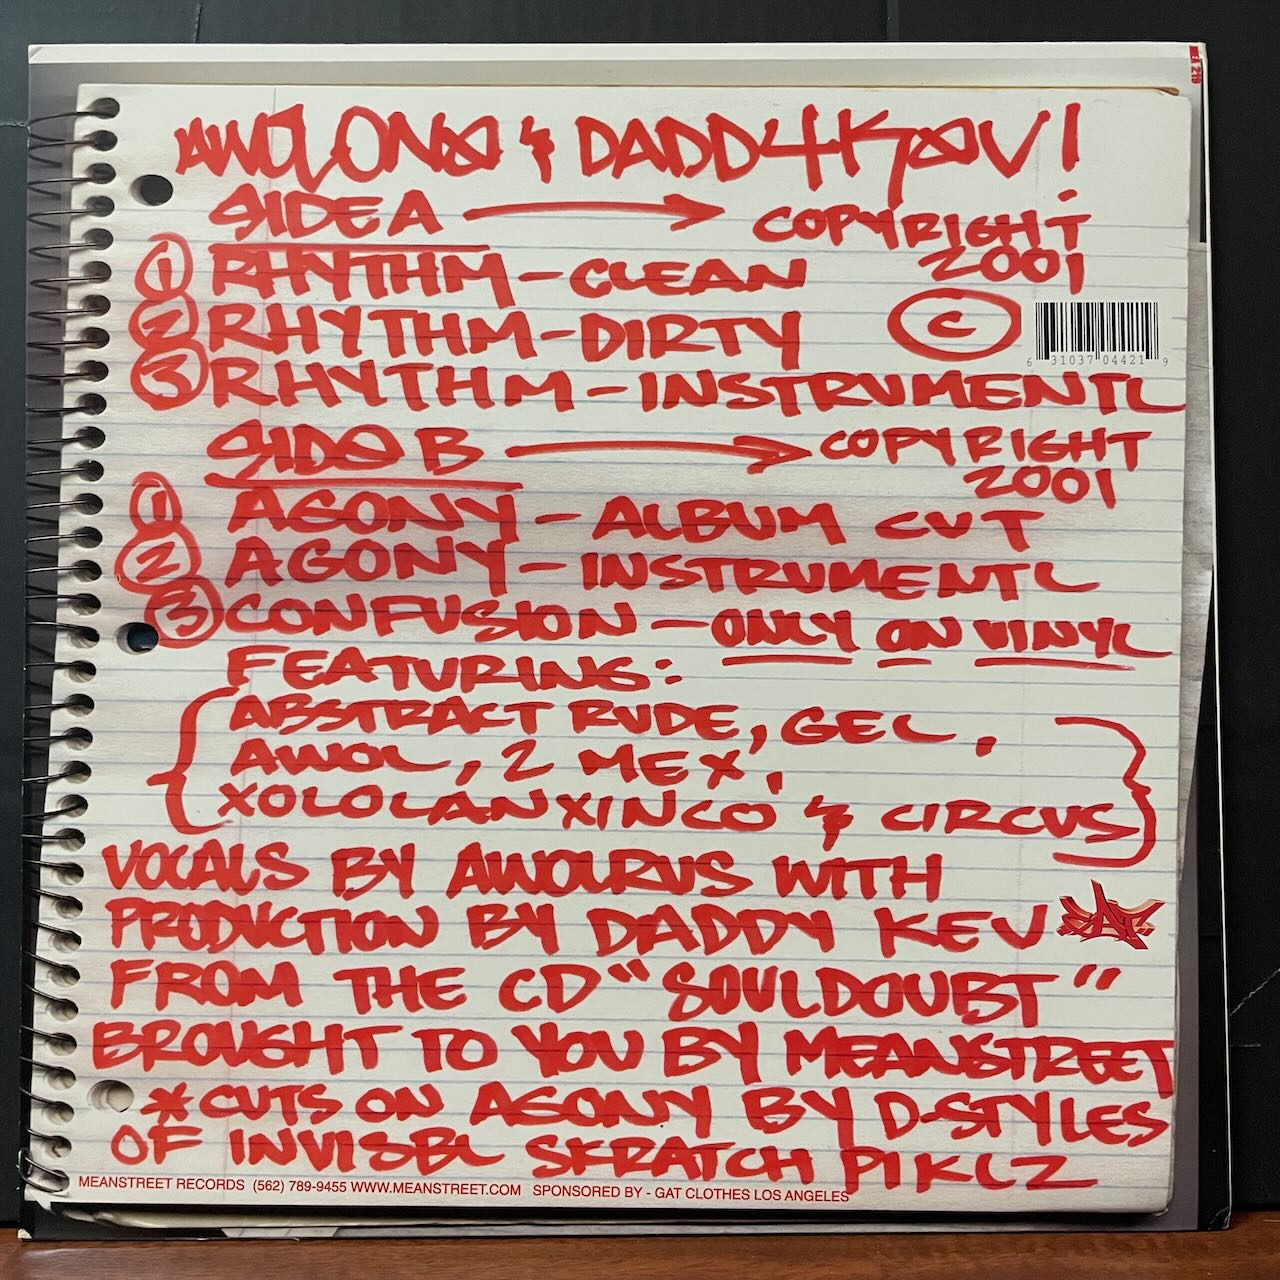 AWOLONE & DADDYKEV!
SIDE A → COPYRIGHT 2001
① RHYTHM - CLEAN
② RHYTHM - DIRTY © 
③ RHYTHM - INSTRUMENTL
6 31037 04421 9
SIDE B → COPYRIGHT 2001
① AGONY - ALBUM CUT
② AGONY - INSTRUMENTL
③ CONFUSION - ONLY ON VINYL
FEATURING:
{ ABSTRACT RUDE, GEL,
AWOL, 2 MEX,
XOLOLANXINCO & CIRCUS }
VOCALS BY AWOLRUS WITH
PRODUCTION BY DADDY KEV
GAT
FROM THE CD "SOULDOUBT"
BROUGHT TO YOU BY MEANSTREET
*CUTS ON AGONY BY D-STYLES
OF INVISBL SKRATCH PIKLZ
MEANSTREET RECORDS (562) 789-9455 WWW.MEANSTREET.COM SPONSORED BY - GAT CLOTHES LOS ANGELES